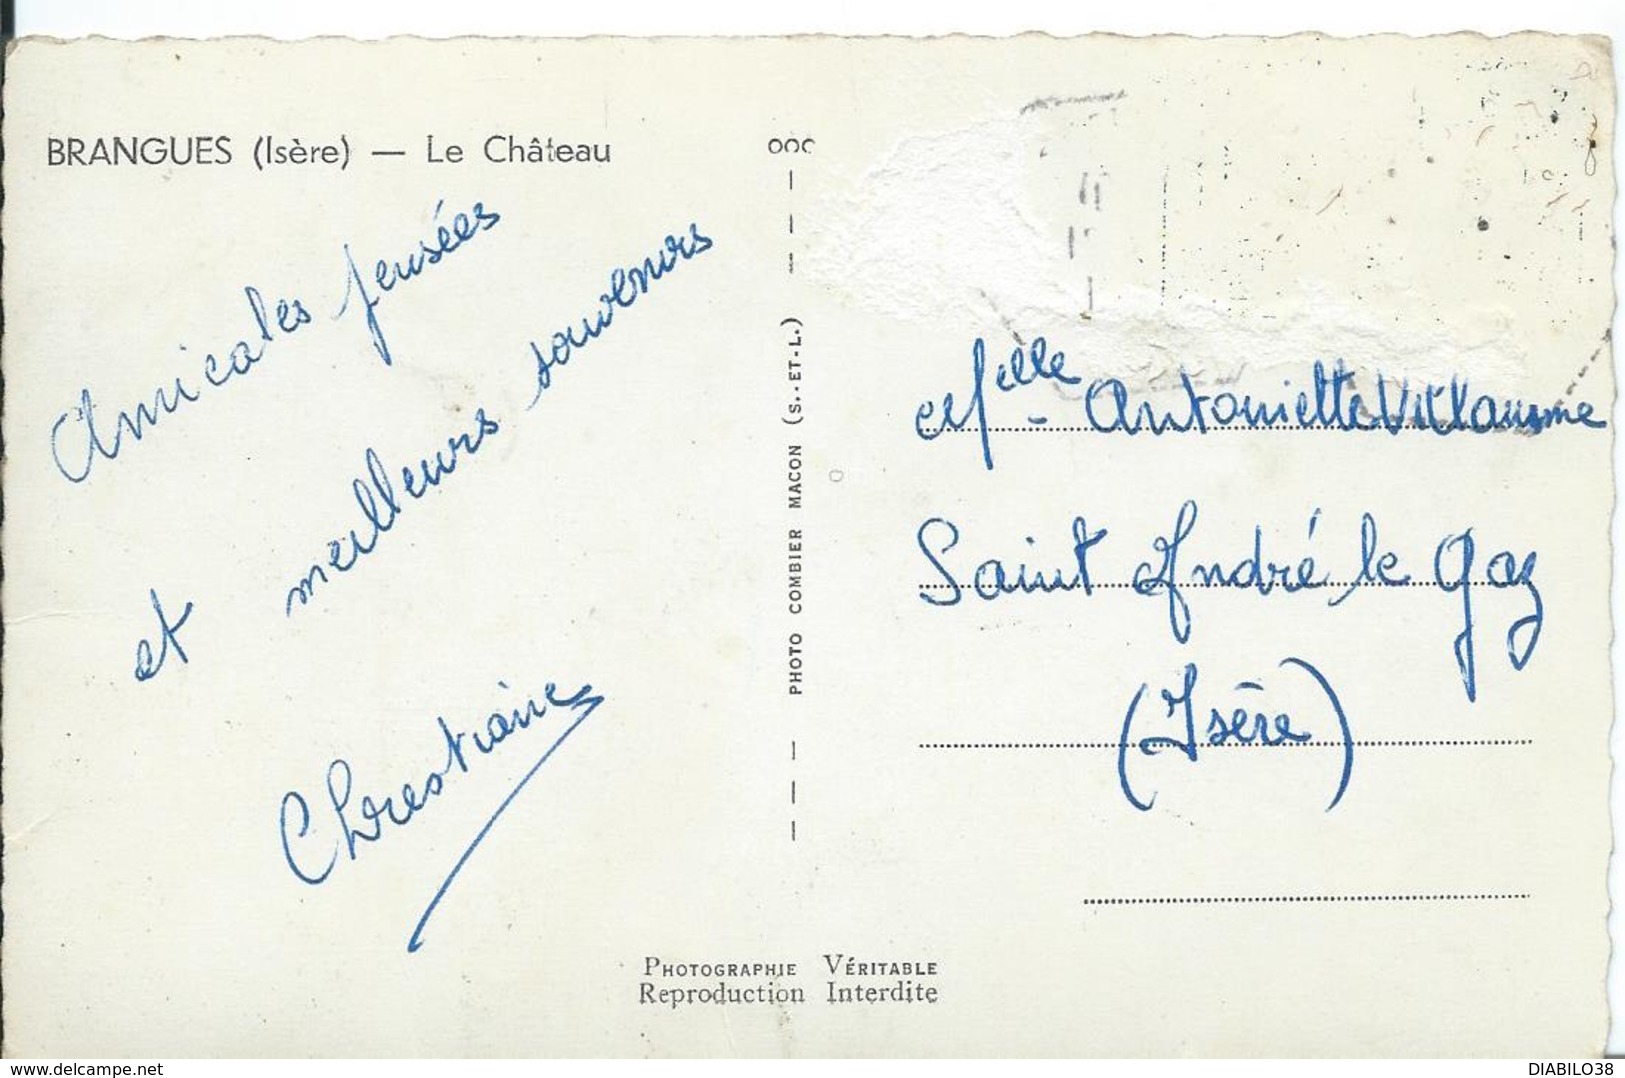 BRANGUES (Isère) — Le Château
Amicales pensées
et meilleurs souvenirs
Christiane
PHOTO COMBIER MACON (S.-ET-L.)
Melle - Antoinette
Saint André le Gaz
(Isère)
PHOTOGRAPHIE VÉRITABLE
Reproduction Interdite
DIABILO38
www.delcampe.net